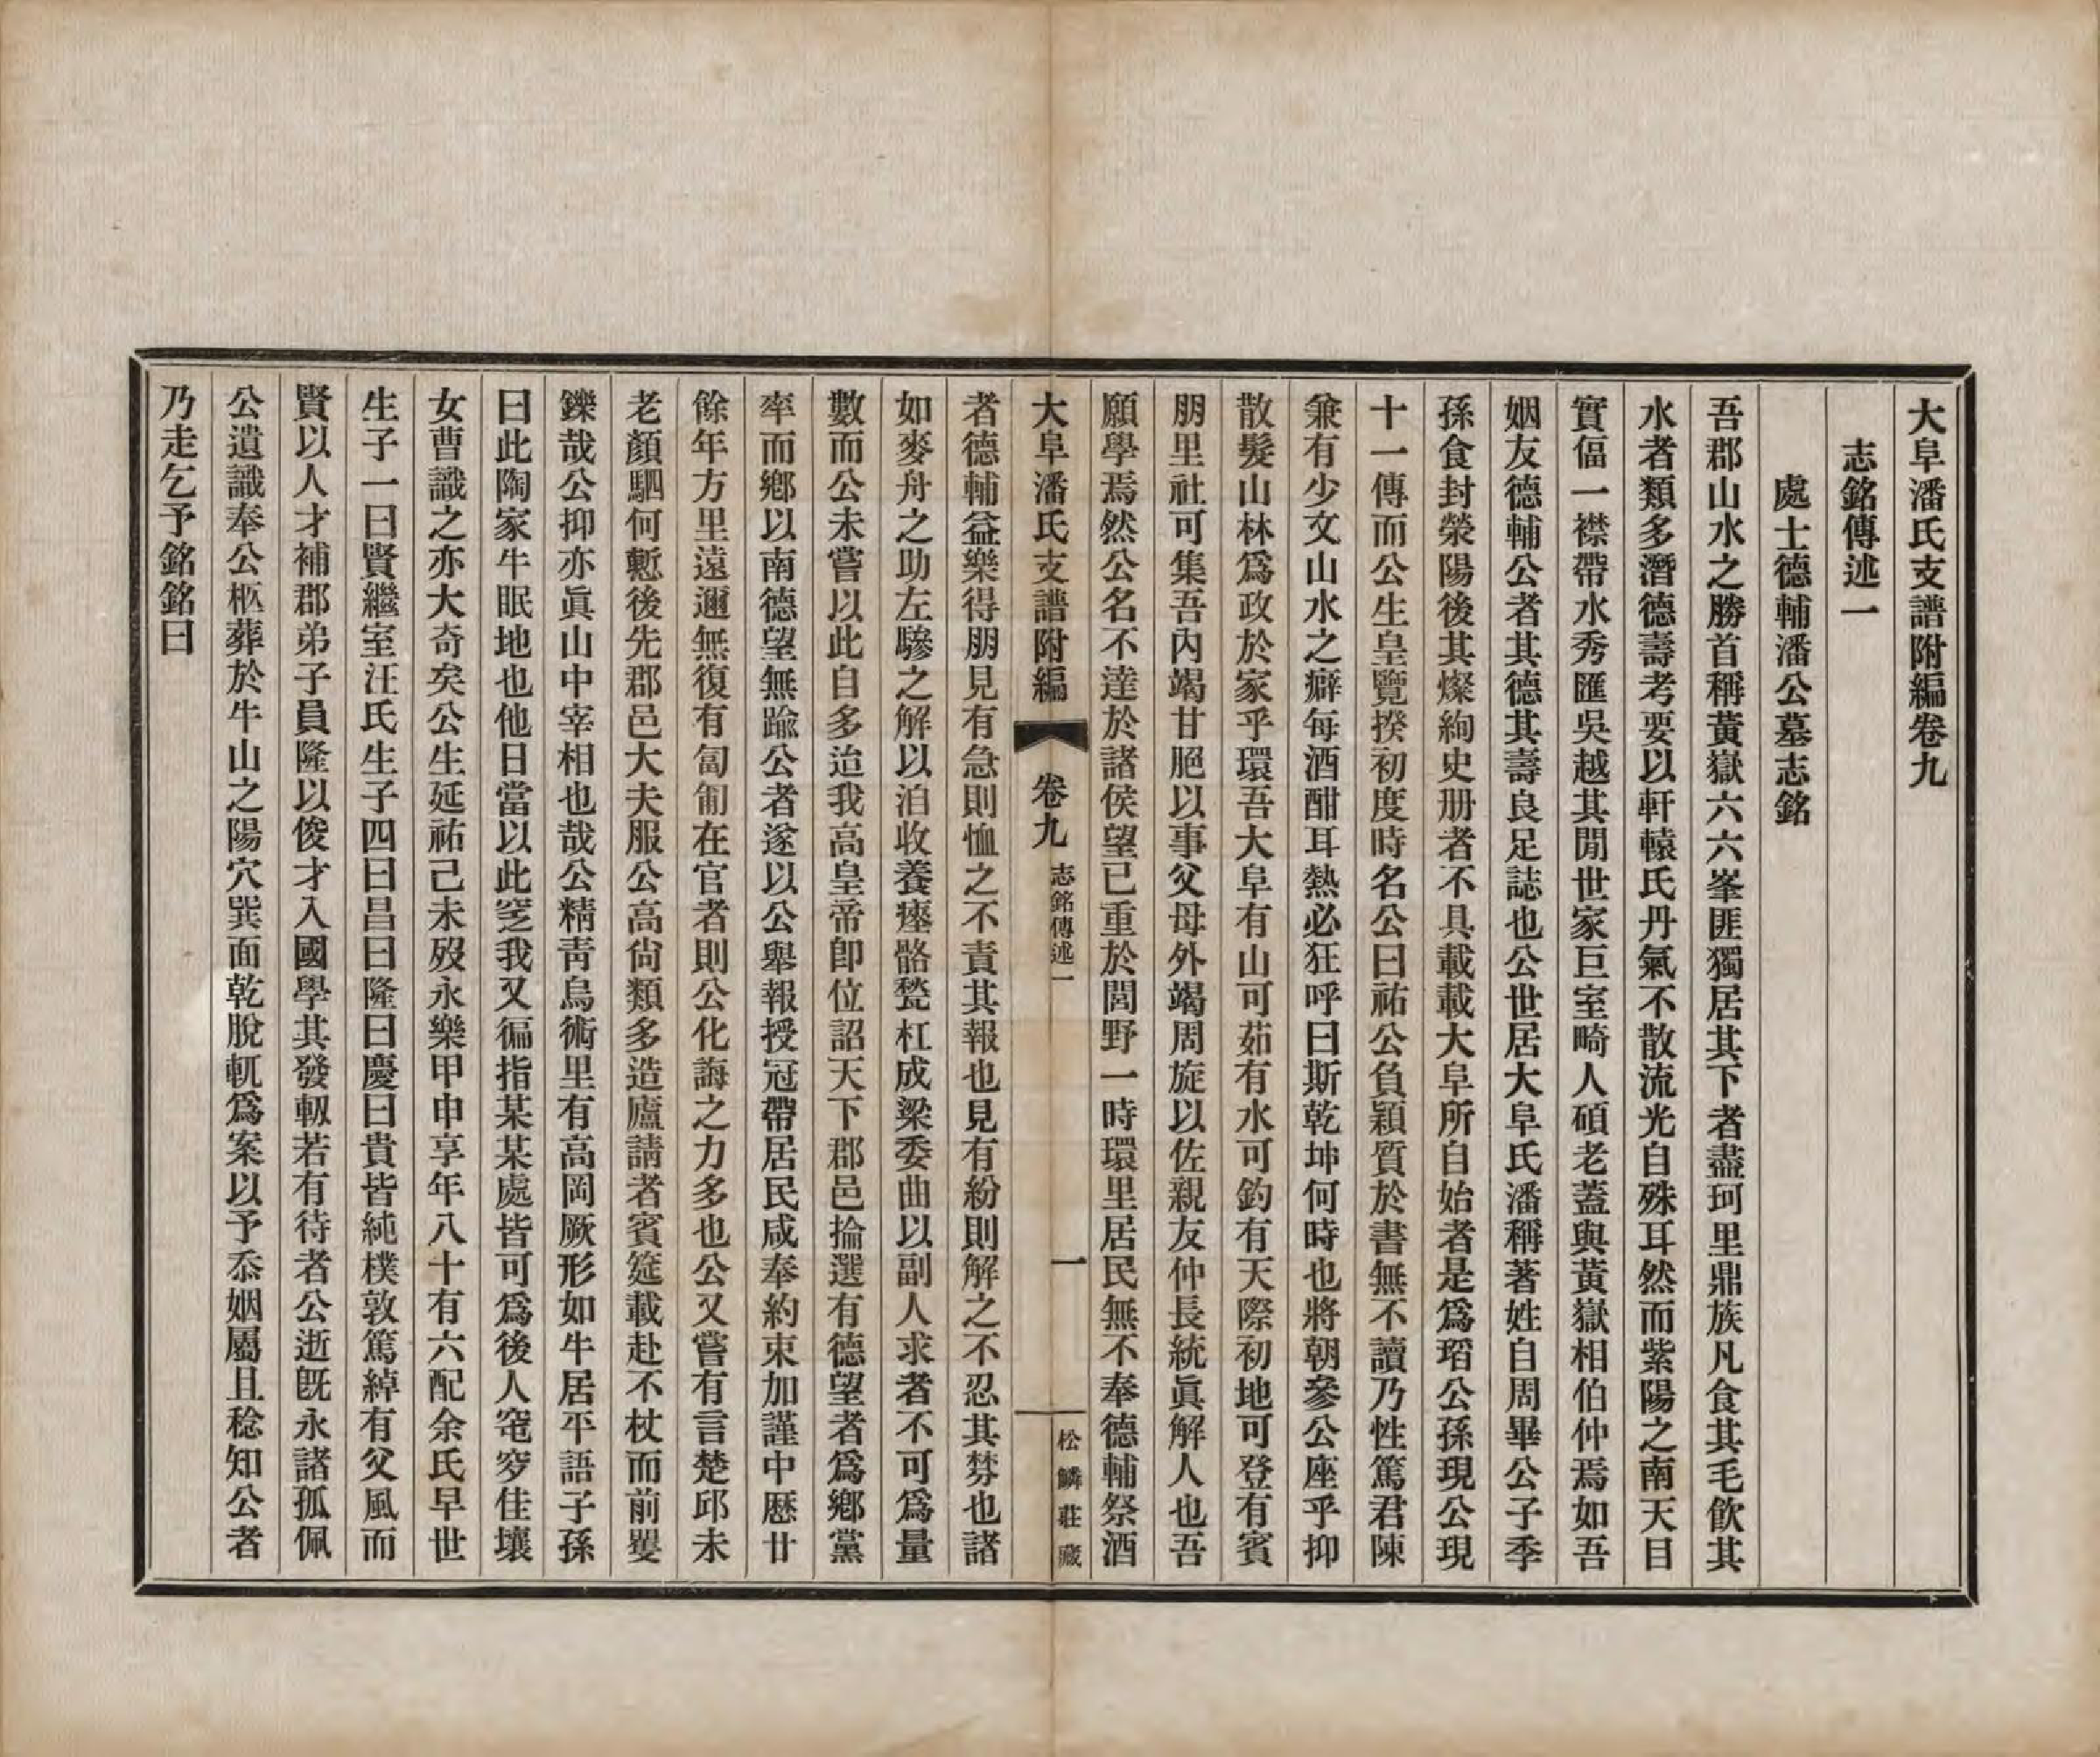 大阜潘氏支譜附編卷九
志銘傳述一
處士德輔潘公墓志銘
吾郡山水之勝首稱黃嶽六六峯匪獨居其下者盡珂里鼎族凡食其毛飲其
水者類多潛德壽考要以軒轅氏丹氣不散流光自殊耳然而紫陽之南天目
實偪一襟帶水秀匯吳越其閒世家巨室畸人碩老蓋與黃嶽相伯仲焉如吾
姻友德輔公者其德其壽良足誌也公世居大阜氏潘稱著姓自周畢公子季
孫食封榮陽後其燦絢史册者不具載載大阜所自始者是爲瑫公孫現公現
十一傳而公生皇覽揆初度時名公曰祐公負穎質於書無不讀乃性篤君陳
兼有少文山水之癖每酒酣耳熱必狂呼曰斯乾坤何時也將朝參公座乎抑
散髮山林爲政於家乎環吾大阜有山可茹有水可釣有天際初地可登有賓
朋里社可集吾內竭甘脆以事父母外竭周旋以佐親友仲長統眞解人也吾
願學焉然公名不達於諸侯望已重於閭野一時環里居民無不奉德輔祭酒
大阜潘氏支譜附編 卷九 志銘傳述一 一 松鱗莊藏
者德輔益樂得朋見有急則恤之不責其報也見有紛則解之不忍其棼也諸
如麥舟之助左驂之解以洎收養瘞骼甃杠成梁委曲以副人求者不可爲量
數而公未嘗以此自多迨我高皇帝卽位詔天下郡邑掄選有德望者爲鄉黨
率而鄉以南德望無踰公者遂以公舉報授冠帶居民咸奉約束加謹中歷廿
餘年方里遠邇無復有訇匐在官者則公化誨之力多也公又嘗有言楚邱未
老顏駟何慙後先郡邑大夫服公高尙類多造廬請者賓筵載赴不杖而前矍
鑠哉公抑亦眞山中宰相也哉公精靑烏術里有高岡厥形如牛居平語子孫
曰此陶家牛眠地也他日當以此窆我又徧指某某處皆可爲後人窀穸佳壤
女曹識之亦大奇矣公生延祐己未歿永樂甲申享年八十有六配余氏早世
生子一曰賢繼室汪氏生子四曰昌曰隆曰慶曰貴皆純樸敦篤綽有父風而
賢以人才補郡弟子員隆以俊才入國學其發軔若有待者公逝旣永諸孤佩
公遺識奉公柩葬於牛山之陽穴巽面乾脫軏爲案以予忝姻屬且稔知公者
乃走乞予銘銘曰